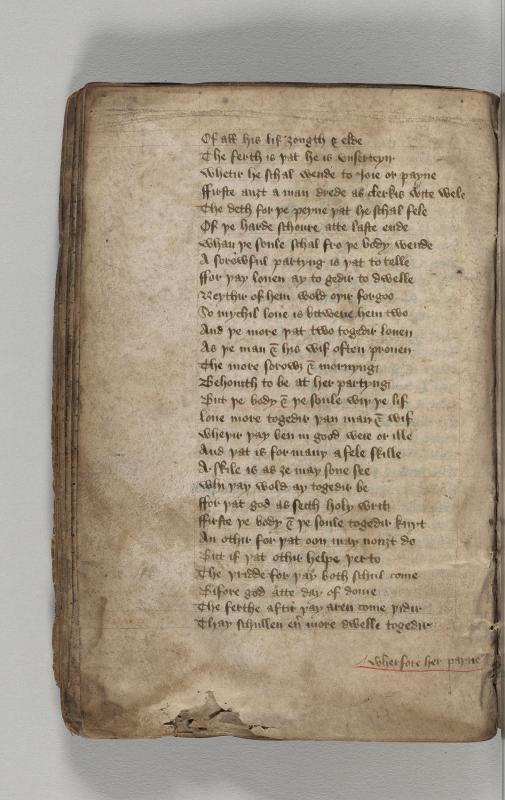 Of all his lif ȝongth & elde
The ferth is þat he is vnserteyn
Whetir he schal wende to Ioie or payne
ffirste auȝt a man drede as clerkis wite wele
The deth for þe peyne þat he schal fele
Of þe harde schoure atte laste ende
Whan þe soule schal fro þe body wende
A sorowful partyng is þat to telle
ffor þay louen ay to gedir to dwelle
Neythir of hem wold oþir forgoo
So mychil loue is bitwene hem two
And þe more þat two togedir louen
As þe man & his wif often prouen
The more sorowȝ & mornyng
Behouith to be at her partyng
But þe body & þe soule wiþ þe lif
loue more togedir þan man & wif
Wheþir þay ben in good weie or ille
And þat is for many a fele skille
A skile is as ȝe may sone see
Whi þay wold ay togedir be
ffor þat god as seith holy writt
ffirste þe body & þe soule togedir knyt
An othir for þat oon may nouȝt do
But if þat othir helpe þerto
The þridde for þay both schul come
Bifore god atte day of dome
The ferthe aftir þay aren come þidir
Thay schullen eu̅ more dwelle togedir
Wherfore her payne